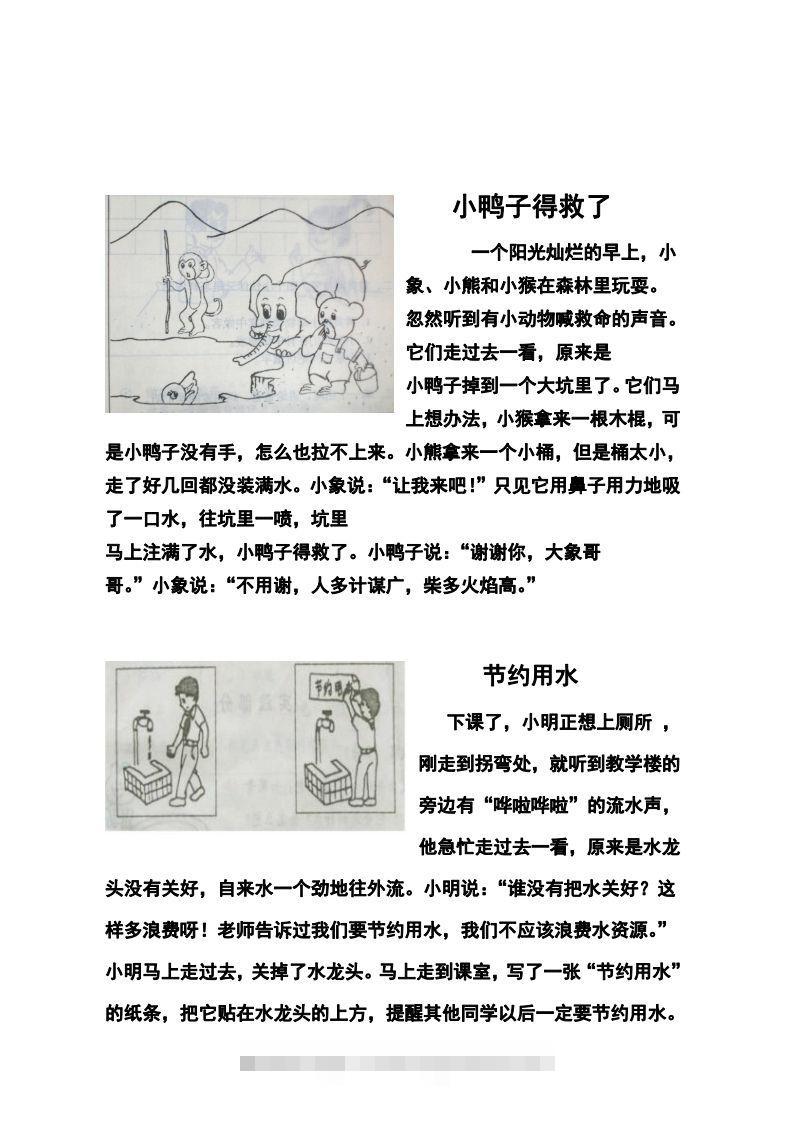 小鸭子得救了
一个阳光灿烂的早上，小
象、小熊和小猴在森林里玩耍。
忽然听到有小动物喊救命的声音。
它们走过去一看，原来是
小鸭子掉到一个大坑里了。它们马
上想办法，小猴拿来一根木棍，可
是小鸭子没有手，怎么也拉不上来。小熊拿来一个小桶，但是桶太小，
走了好几回都没装满水。小象说：“让我来吧！”只见它用鼻子用力地吸
了一口水，往坑里一喷，坑里
马上注满了水，小鸭子得救了。小鸭子说：“谢谢你，大象哥
哥。”小象说：“不用谢，人多计谋广，柴多火焰高。”
节约用水
节约用水
下课了，小明正想上厕所 ，
刚走到拐弯处，就听到教学楼的
旁边有“哗啦哗啦”的流水声，
他急忙走过去一看，原来是水龙
头没有关好，自来水一个劲地往外流。小明说：“谁没有把水关好？这
样多浪费呀！老师告诉过我们要节约用水，我们不应该浪费水资源。”
小明马上走过去，关掉了水龙头。马上走到课室，写了一张“节约用水”
的纸条，把它贴在水龙头的上方，提醒其他同学以后一定要节约用水。